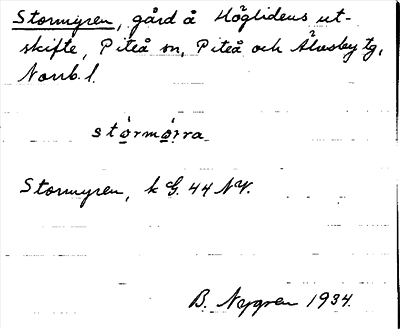 Stormyren, gård å Höglidens ut-
skifte, Piteå sn, Piteå och Älvsby tg,
Norrb. l.
stórmó̀rra
Stormyren, k G. 44 NV.
B. Nygren 1934.